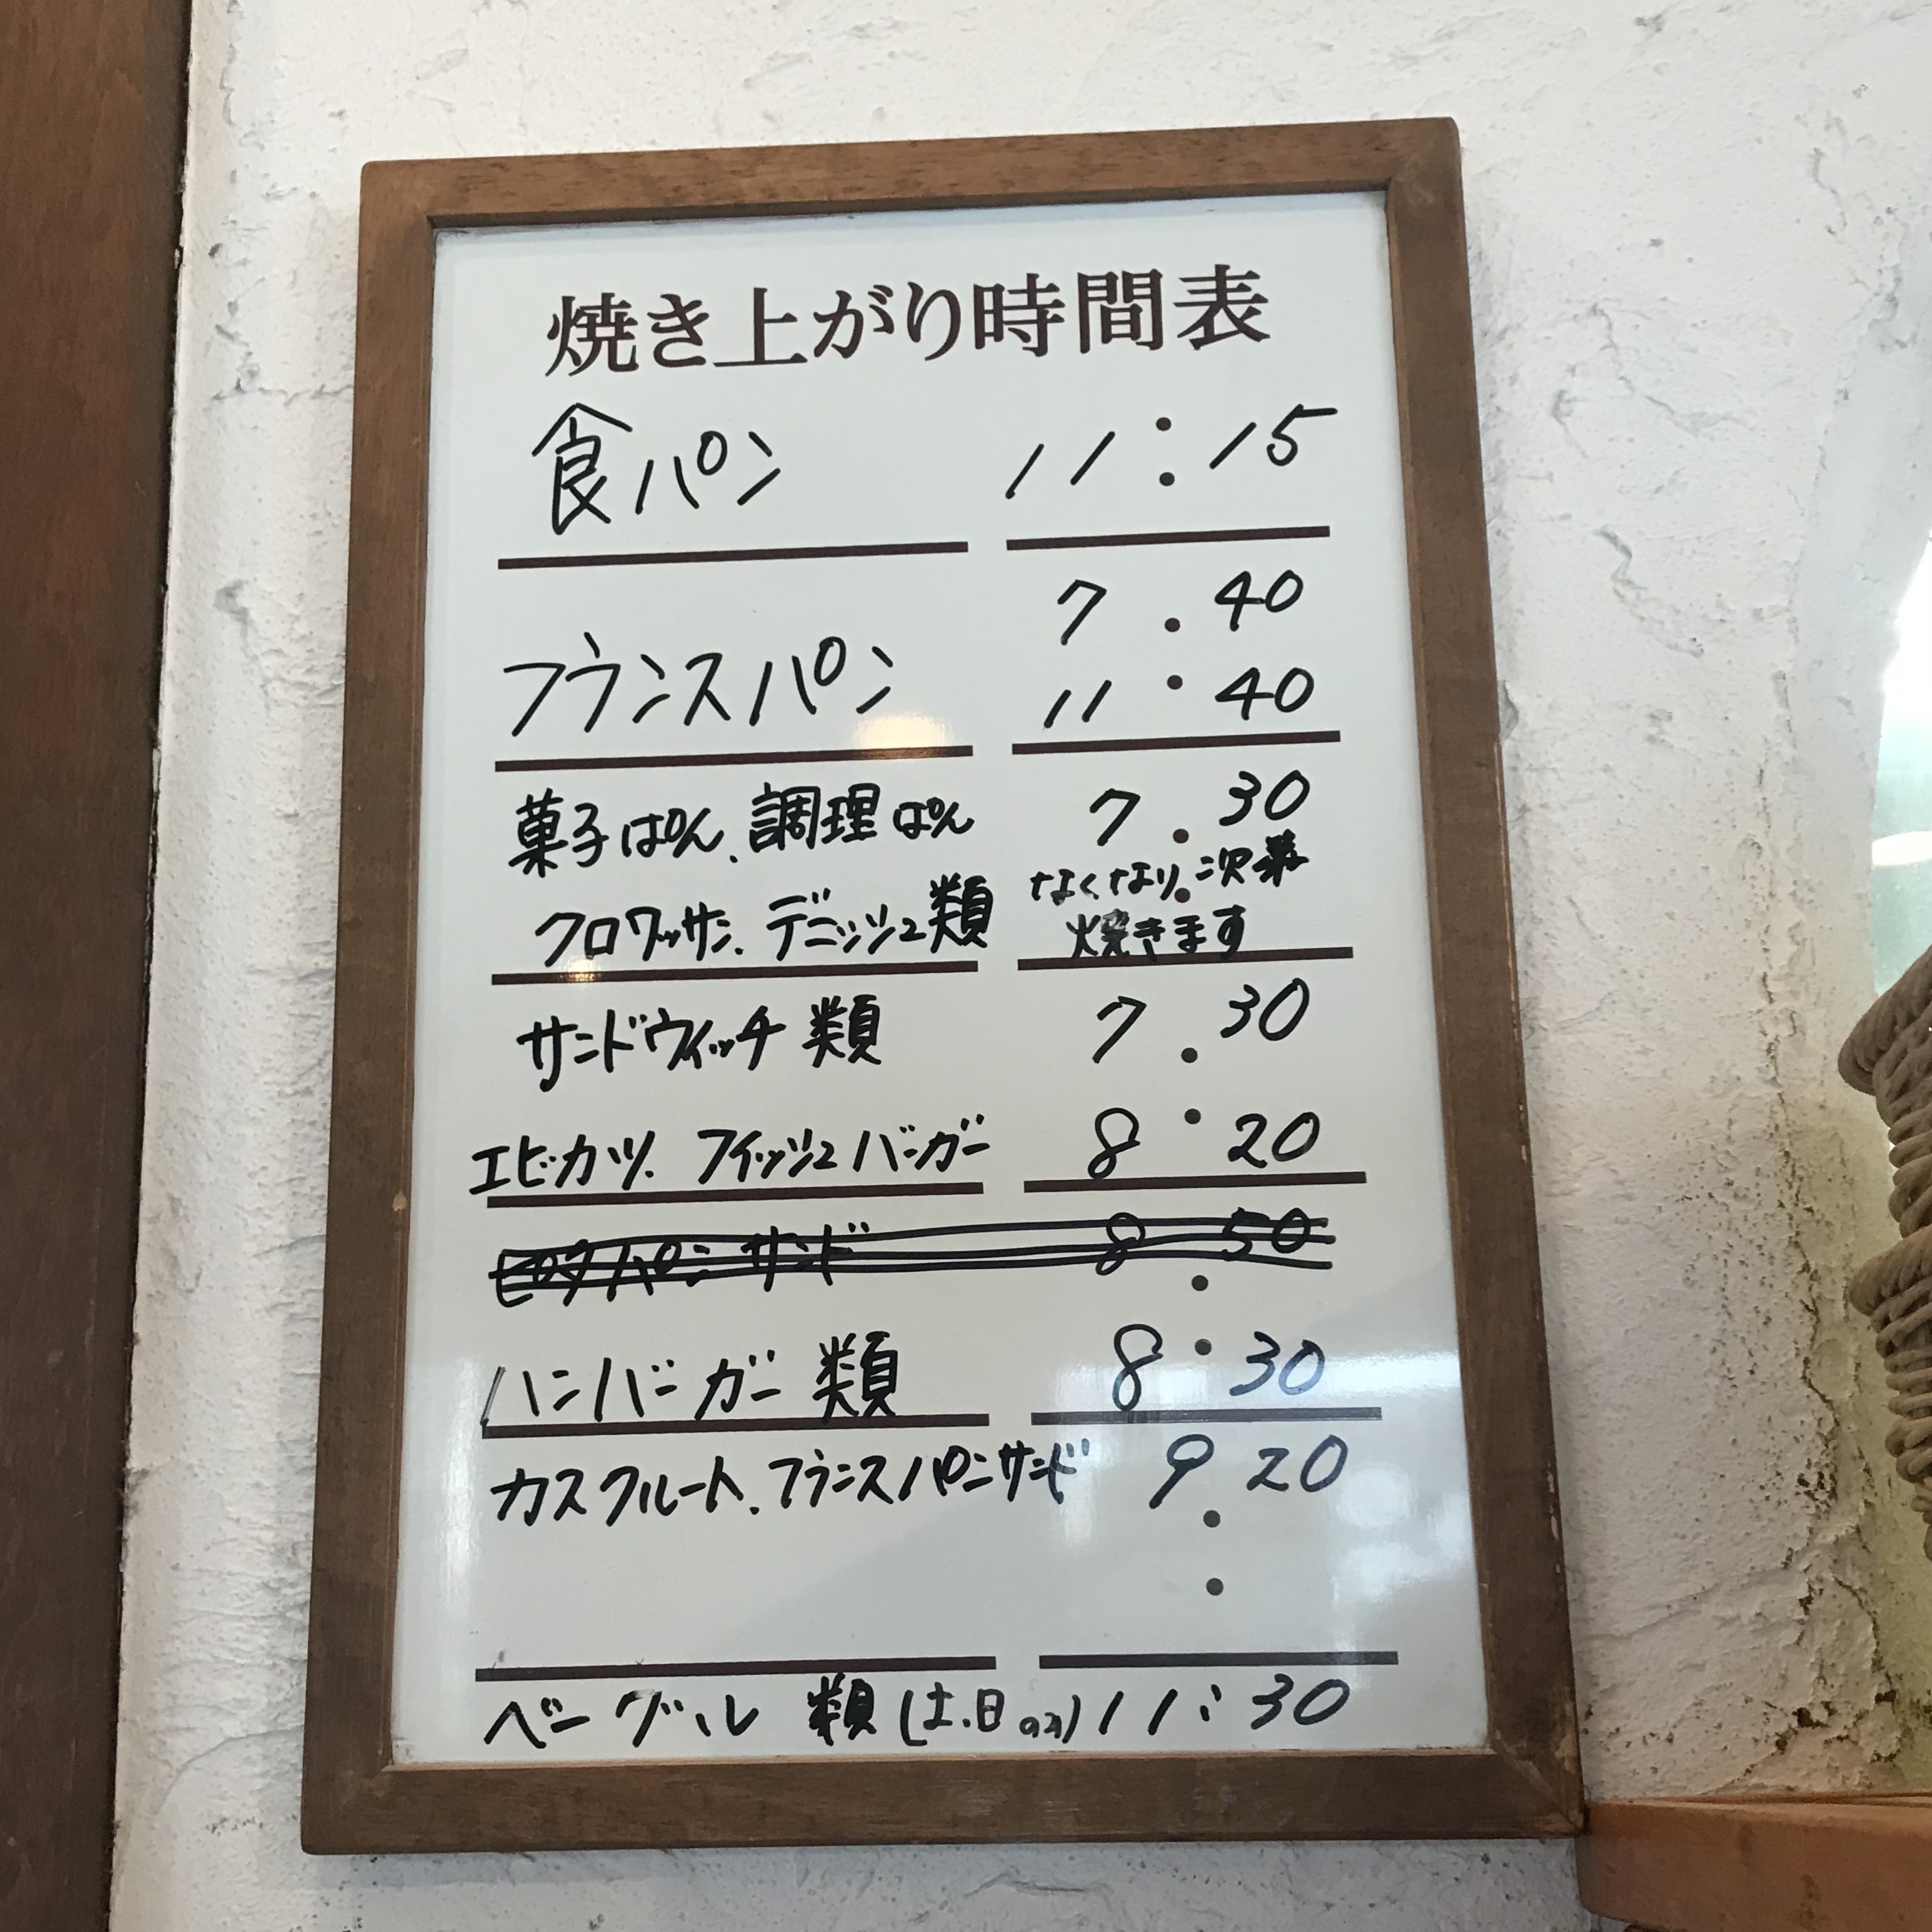 焼き上がり時間表
食パン 11:15
7:40
フランスパン 11:40
菓子ぱん、調理ぱん 7:30
クロワッサン、デニッシュ類 なくなり次第
焼きます
サンドウィッチ類 7:30
エビカツ、フィッシュバーガー 8:20
パンサンド 8 50
ハンバーガー類 8:30
カスクルート、フランスパンサンド 9:20
ベーグル類(土、日のみ) 11:30